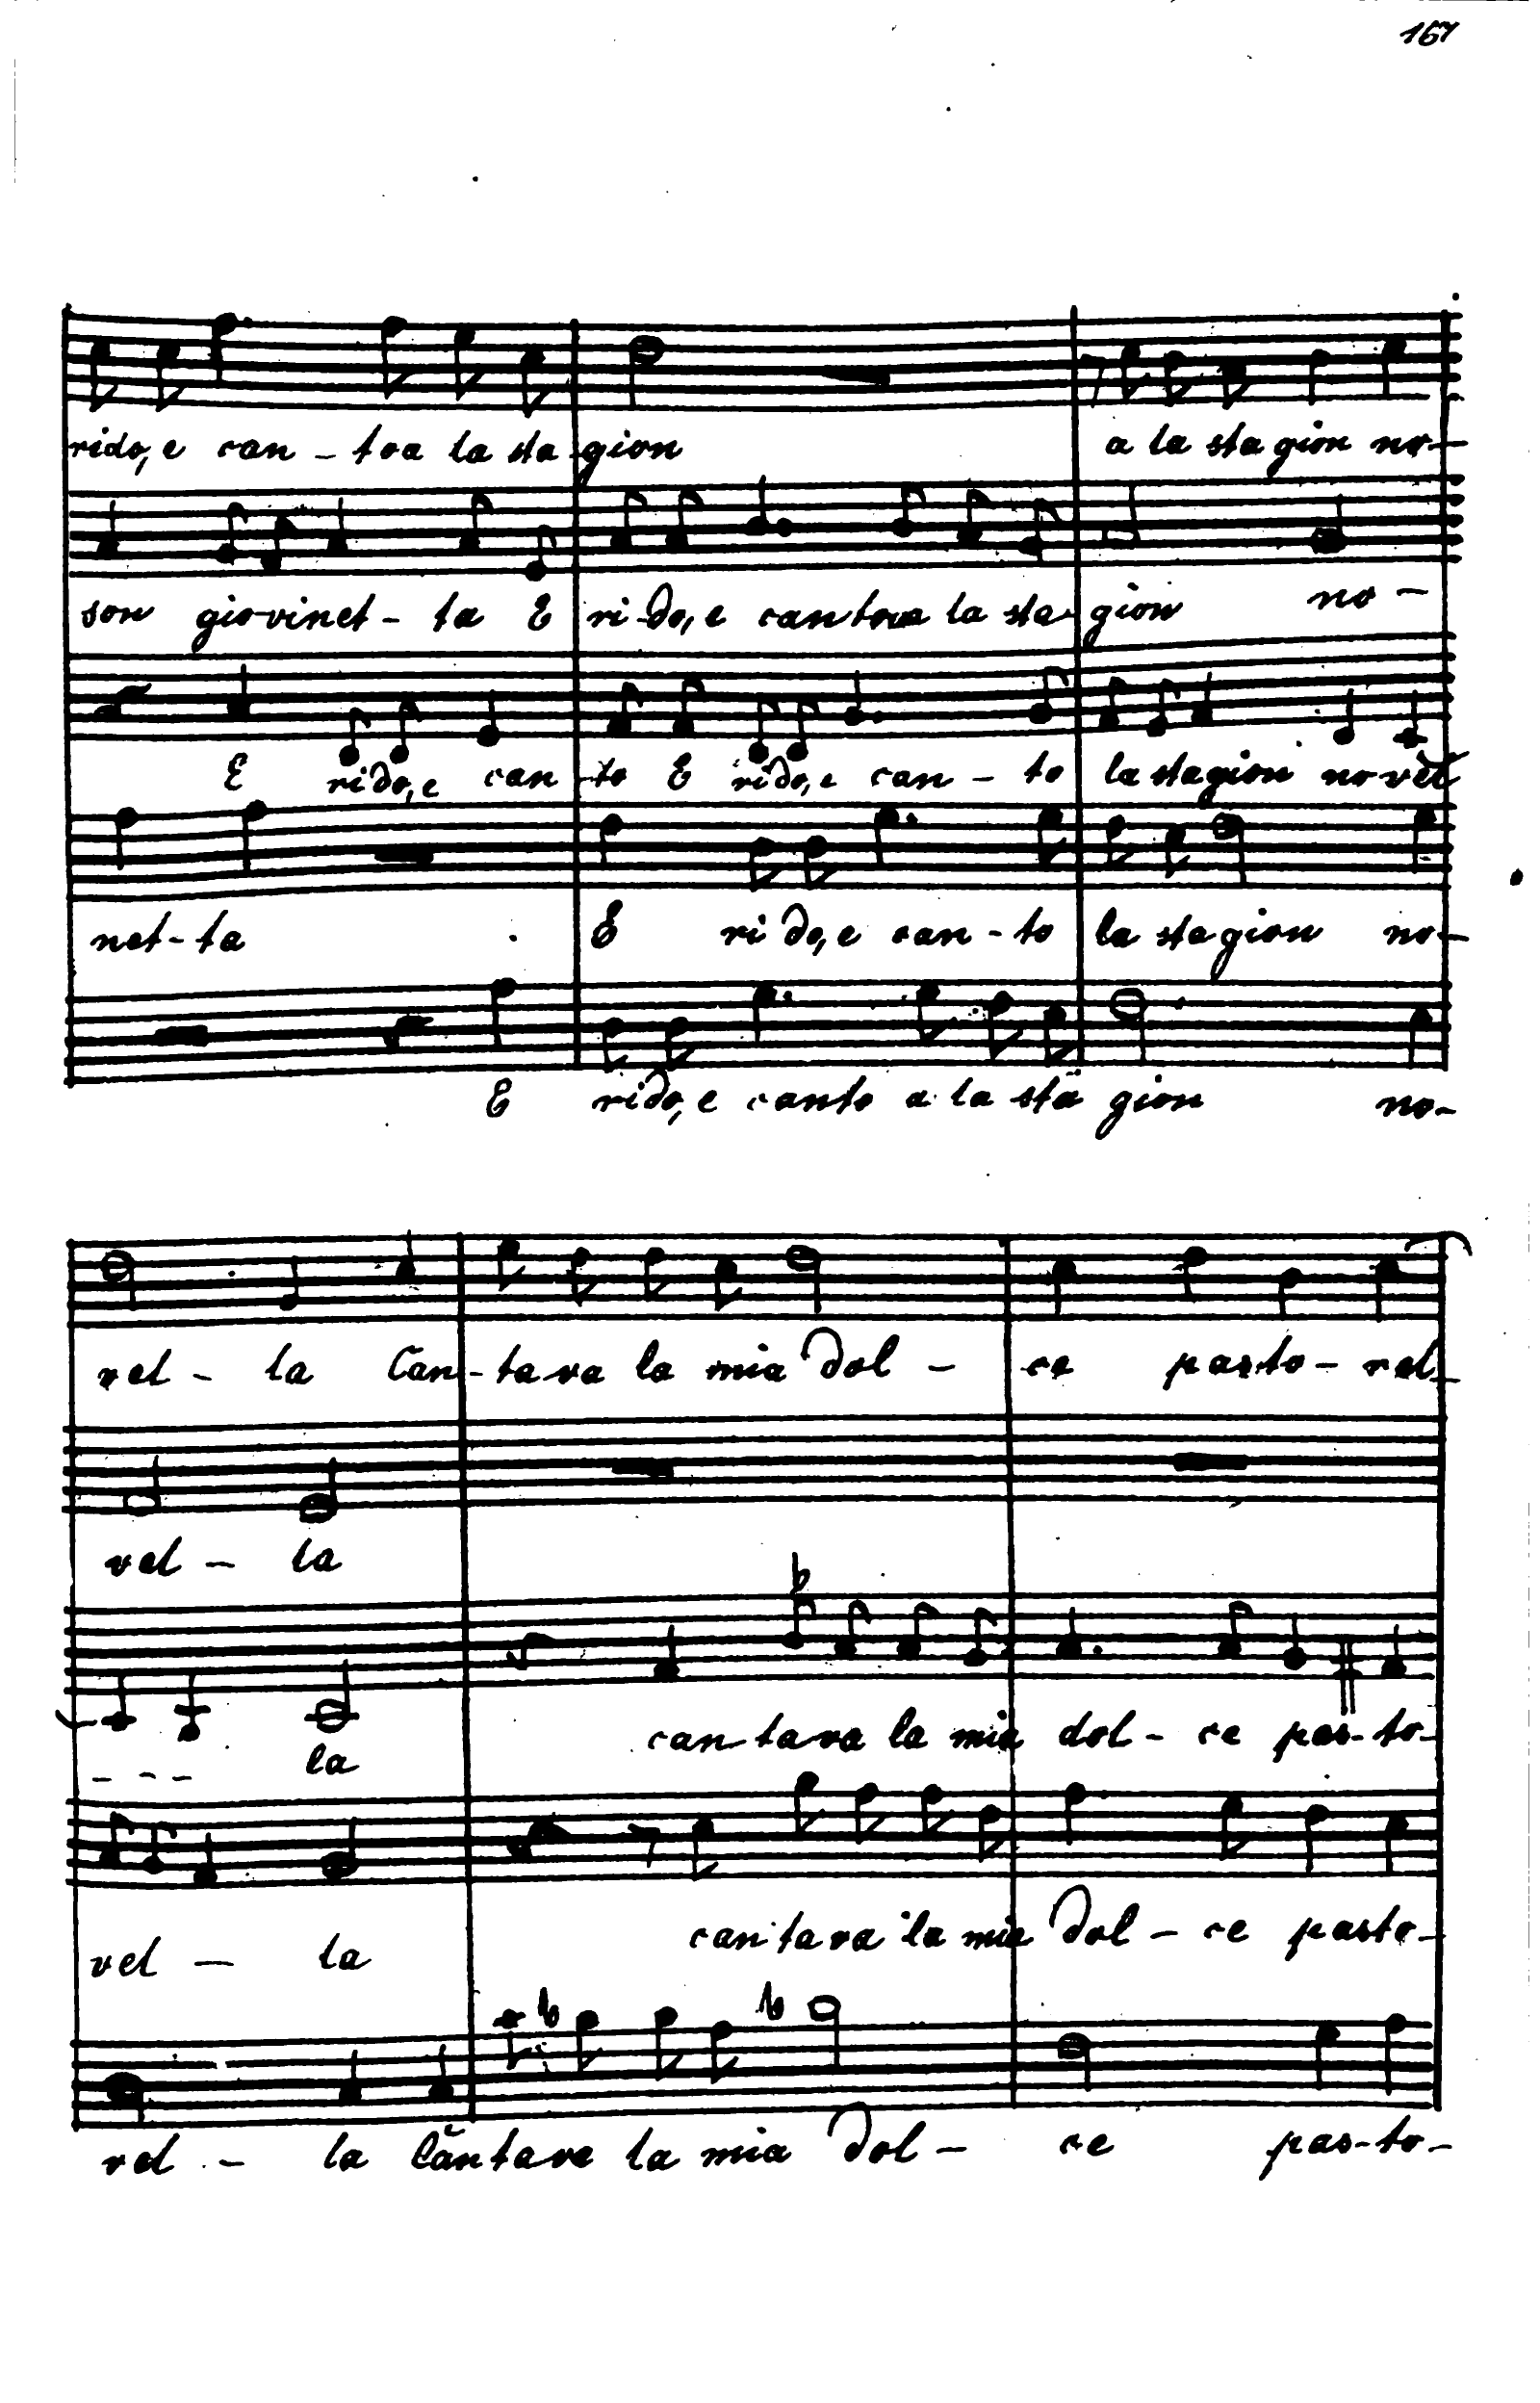 167
rido, e can - toa la sta - gion a la stagion no -
son giovinet - ta E ri - do, e cantoa la sta - gion no -
E rido, e can - to E rido, e can - to la stagion novel
net - ta E ri do, e can - to la stagion no -
E rido, e canto a la sta gion no -
vel - la Can - tava la mia dol - ce pasto - rel -
vel - la
- - - la cantava la mia dol - ce pas - to -
vel - la cantava la mia dol - ce pasto -
vel - la Cantave la mia dol - ce pas - to -